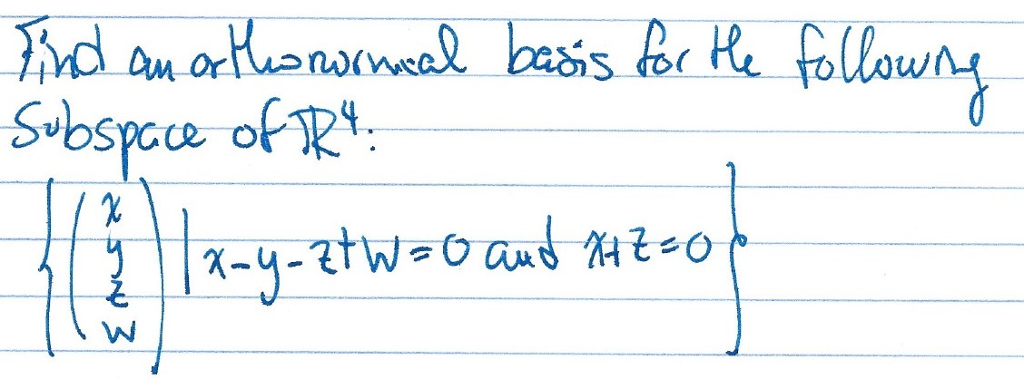 Find an orthonormal basis for the following
Subspace of ℝ⁴:
{ ( x y z w ) | x-y-z+w=0 and x+z=0 }